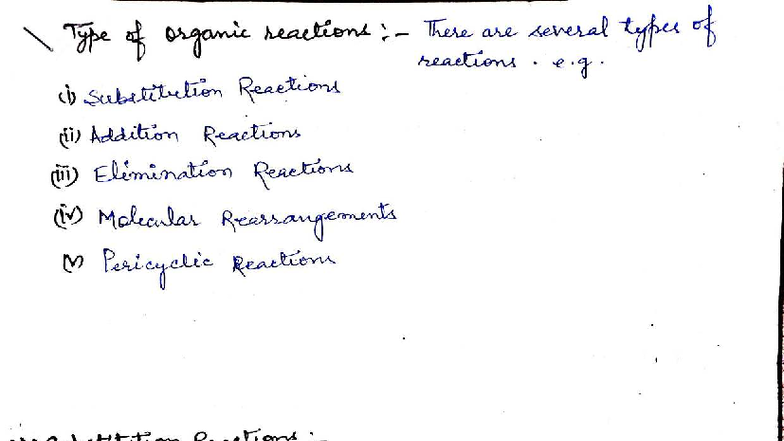 Type of organic reactions :- There are several types of
reactions. e.g.
(i) Substitution Reactions
(ii) Addition Reactions
(iii) Elimination Reactions
(iv) Molecular Rearrangements
(v) Pericyclic Reactions
Reactions :-